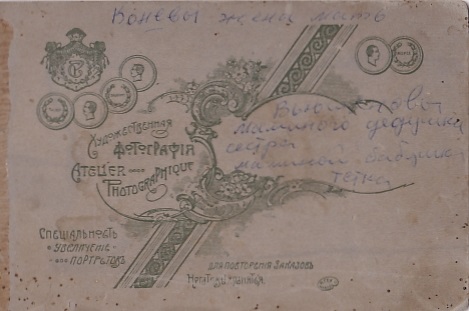 Коневы жена мать
Художественная
Фотографія
Atelier
Photographique
маминого дедушки
сестра
маминой бабушки
тетка
Спеціальность
увеличеніе
портретовъ
для повторенія заказовъ
Негативы хранятся